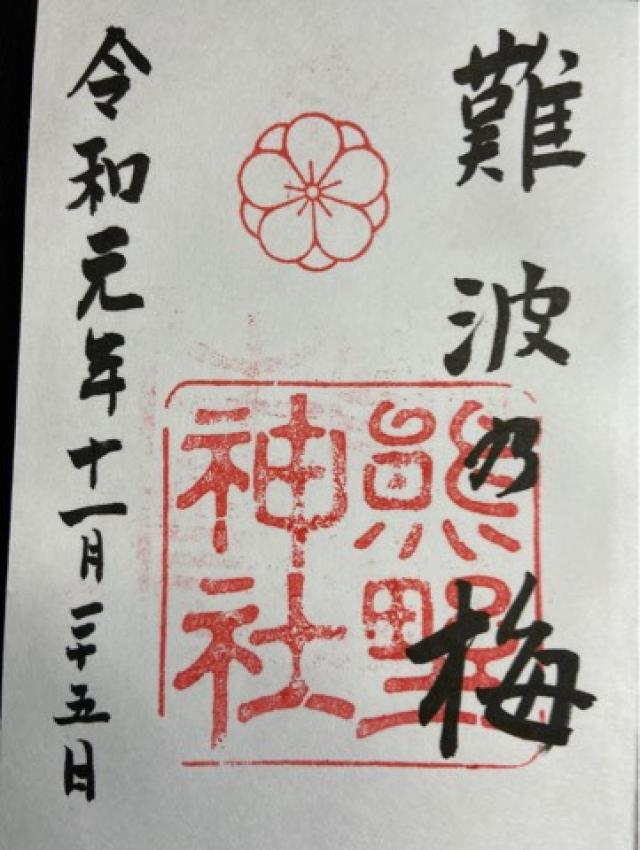 難波乃梅
熊野
神社
令和元年十一月二十五日